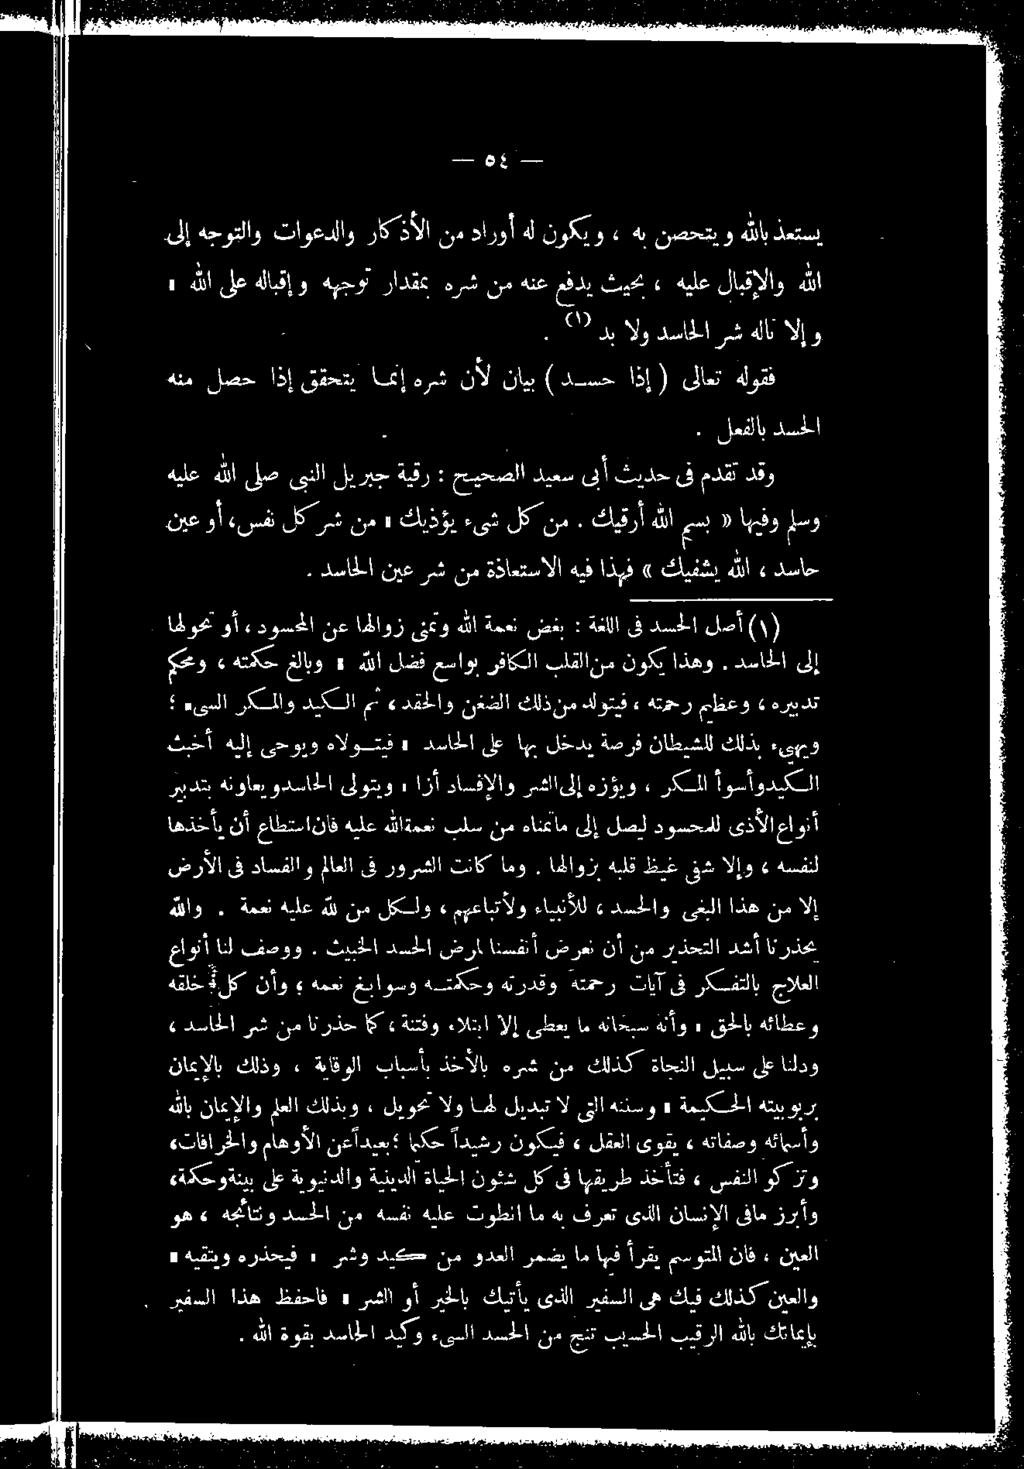 — ٥٤ —
يستعذ بالله ويتحصن به ، ويكون له أوراد من الأذكار والدعوات والتوجه إلى
الله والإقبال عليه ، بحيث يدفع عنه من شره بمقدار توجهه وإقباله على الله ،
وإلا ناله شر الحاسد ولا بد (١) .
فقوله تعالى ( إذا حسد ) بيان لأن شره إنما يتحقق إذا حصل منه
الحسد بالفعل .
وقد تقدم فى حديث أبى سعيد الصحيح : رقية جبريل النبى صلى الله عليه
وسلم وفيها « بسم الله أرقيك . من كل شىء يؤذيك ، من شر كل نفس، أو عين
حاسد ، الله يشفيك » فهذا فيه الاستعاذة من شر عين الحاسد .
(١) أصل الحسد فى اللغة : بغض نعمة الله وتمنى زوالها عن المحسود، أو تحولها
إلى الحاسد . وهذا يكون من القلب الكافر بواسع فضل الله ، وبالغ حكمته ، ومحكم
تدبيره ، وعظيم رحمته ، فيتولد من ذلك الضغن والحقد ، ثم الكيد والمكر السىء ؛
ويهىء بذلك للشيطان فرصة يدخل بها على الحاسد ، فيتولاه ويوحى إليه أخبث
الكيد وأسوأ المكر ، ويؤزه إلى الشر والإفساد أزا ، ويتولى الحاسد ويعاونه بتدبير
أنواع الأذى للمحسود ليصل إلى ماتمناه من سلب نعمة الله عليه فان استطاع أن يأخذها
لنفسه ، وإلا شفى غيظ قلبه بزوالها . وما كانت الشرور فى العالم والفساد فى الأرض
إلا من هذا البغى والحسد ، للأنبياء ولأتباعهم ، ولكل من لله عليه نعمة . والله
يحذرنا أشد التحذير من أن نعرض أنفسنا لمرض الحسد الخبيث . ووصف لنا أنواع
العلاج بالتفكر فى آيات رحمته وقدرته وحكمته وسوابغ نعمه ؛ وأن كل خلقه
وعطائه بالحق ، وأنه سبحانه ما يعطى إلا ابتلاء وفتنة ، كما حذرنا من شر الحاسد ،
ودلنا على سبيل النجاة كذلك من شره بالأخذ بأسباب الوقاية ، وذلك بالإيمان
بربوبيته الحكيمة ، وسننه التى لا تبديل لها ولا تحويل ، وبذلك العلم والإيمان بالله
وأسمائه وصفاته ، يقوى العقل ، فيكون رشيداً حكيما ؛ بعيداً عن الأوهام والخرافات،
وتزكو النفس ، فتأخذ طريقها فى كل شئون الحياة الدينية والدنيوية على بينة وحكمة،
وأبرز مافى الإنسان الذى تعرف به ما انطوت عليه نفسه من الحسد ونتائجه ، هو
العين ، فان المتوسم يقرأ فيها ما يضمر العدو من كيد وشر ، فيحذره ويتقيه ،
والعين كذلك فيك هى السفير الذى يأتيك بالخير أو الشر ، فاحفظ هذا السفير
بإيمانك بالله الرقيب الحسيب تنج من الحسد السىء وكيد الحاسد بقوة الله .